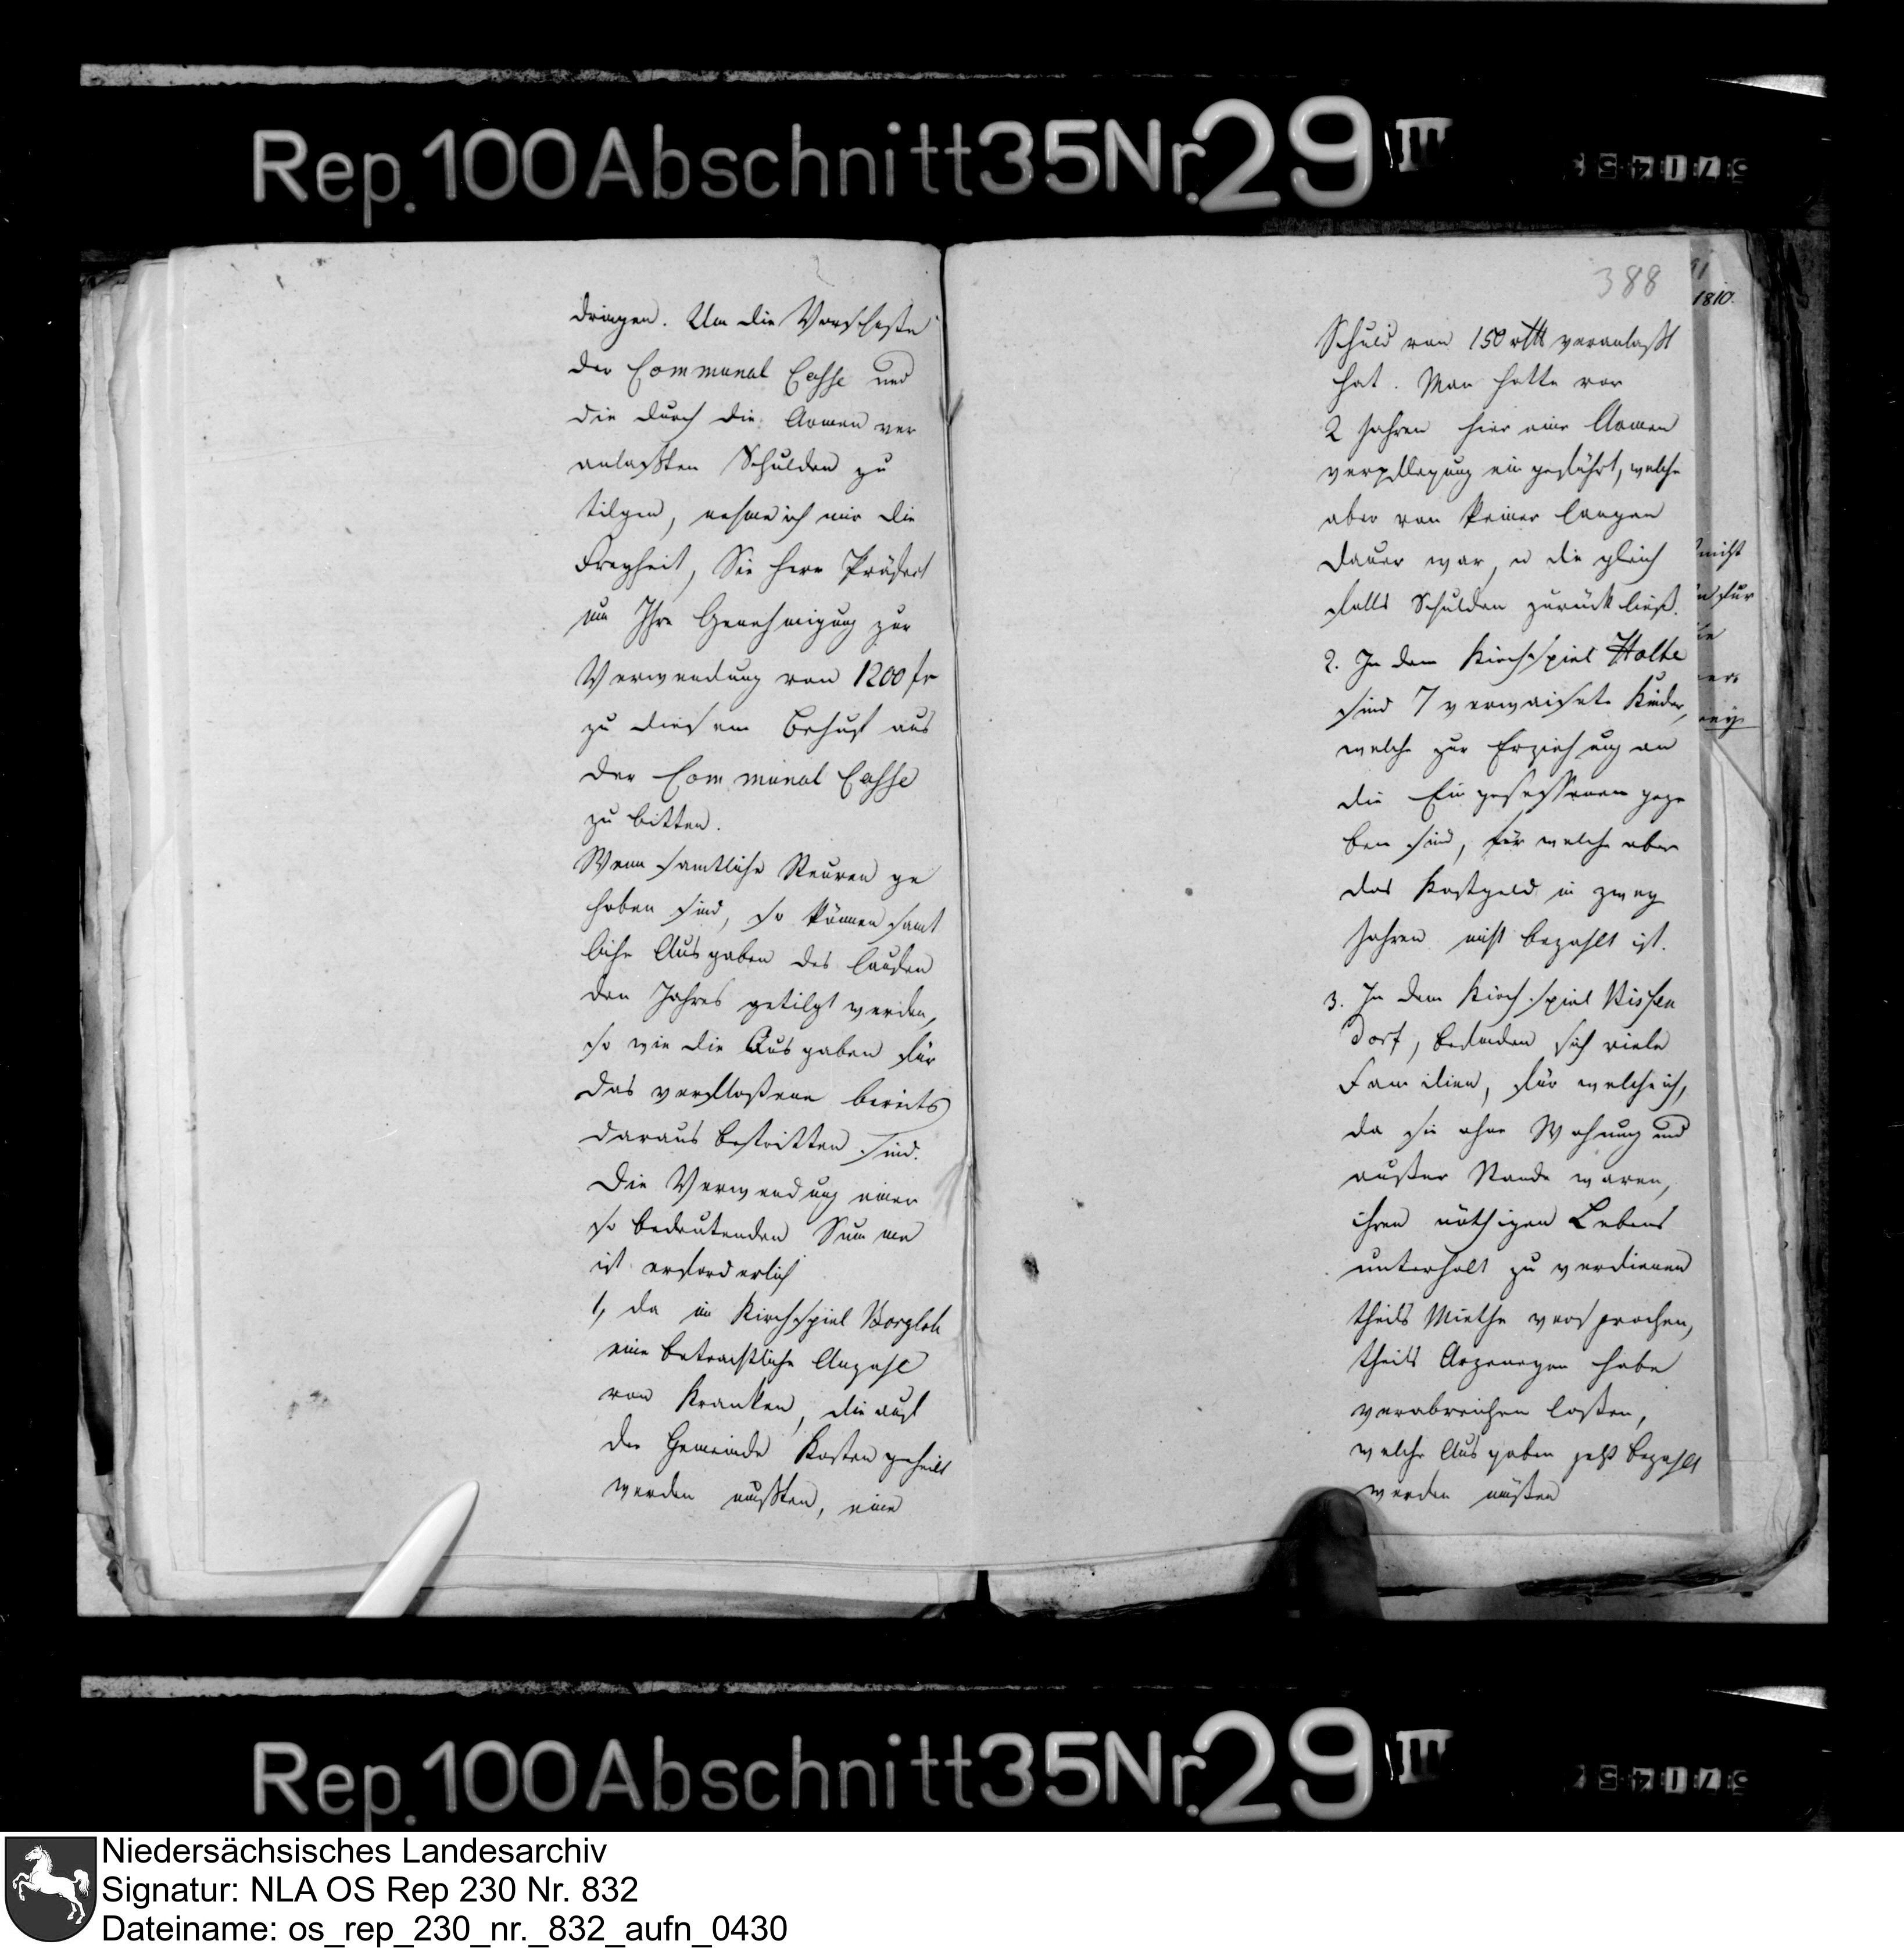 Rep. 100 Abschnitt 35 Nr. 29 III
dringen. Um die Vorschüße
der Communal Casse und
die durch die Armen ver
anlaßten Schulden zu
tilgen, nehme ich mir die
Freyheit, Sie Herr Präfect
um Ihre Genehmigung zur
Verwendung von 1200 fr
zu diesem Behuf aus
der Communal Casse
zu bitten.
Wenn samtliche Steuren ge
hoben sind, so können samt
liche Ausgaben des laufen
den Jahres getilgt werden,
so wie die Ausgaben für
das verfloßene bereits
daraus bestritten sind.
Die Verwendung einer
so bedeutenden Summe
ist erforderlich
1, da im Kirchspiel Borgloh
eine beträchtliche Anzahl
von Kranken, die auf
der Gemeinde Kosten geheilt
werden mußten, eine
388
Schuld von 150 rtl veranlaßt
hat. Man hatte vor
2 Jahren hier eine Armen
verpflegung eingeführt, welche
aber von keiner langen
Dauer war, u die gleich
falls Schulden zurück ließ.
2. In dem Kirchspiel Holte
sind 7 verwaisete Kinder,
welche zur Erziehung an
die Eingesessenen gege
ben sind, für welche aber
das Kostgeld in zwey
Jahren nicht bezahlt ist.
3. In dem Kirchspiel Bissen
dorf, befinden sich viele
Familien, für welche ich,
da sie ohne Wohnung und
außer Stande waren,
ihren nöthigen Lebens
unterhalt zu verdienen
theils Miethe versprochen,
theils Arzeneyen habe
verabreichen laßen,
welche Ausgaben jetzt bezahlt
werden müßen
1810.
nicht
für
Rep. 100 Abschnitt 35 Nr. 29 III
Niedersächsisches Landesarchiv
Signatur: NLA OS Rep 230 Nr. 832
Dateiname: os_rep_230_nr._832_aufn_0430